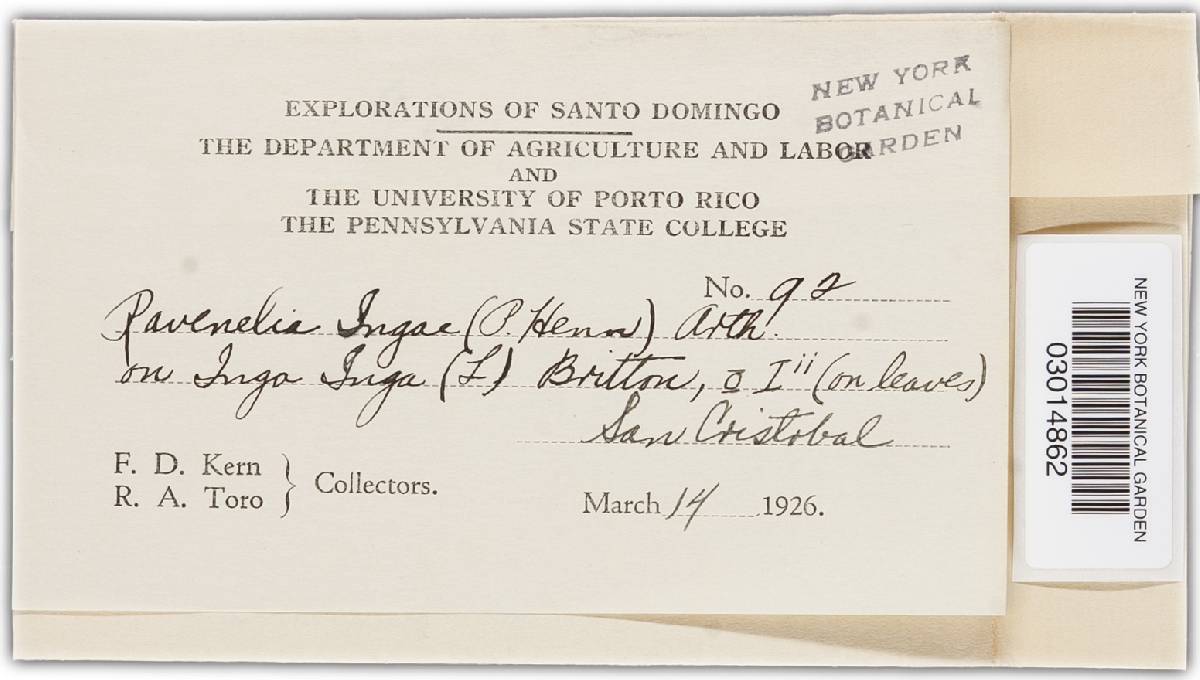 EXPLORATIONS OF SANTO DOMINGO
THE DEPARTMENT OF AGRICULTURE AND LABOR
AND
THE UNIVERSITY OF PORTO RICO
THE PENNSYLVANIA STATE COLLEGE
NEW YORK
BOTANICAL
GARDEN
No. 92
Ravenelia Ingae (P. Henn) Arth.
on Inga Inga (L) Britton, o I ii (on leaves)
San Cristobal
F. D. Kern
R. A. Toro
} Collectors.
March 14 1926.
NEW YORK BOTANICAL GARDEN
03014862